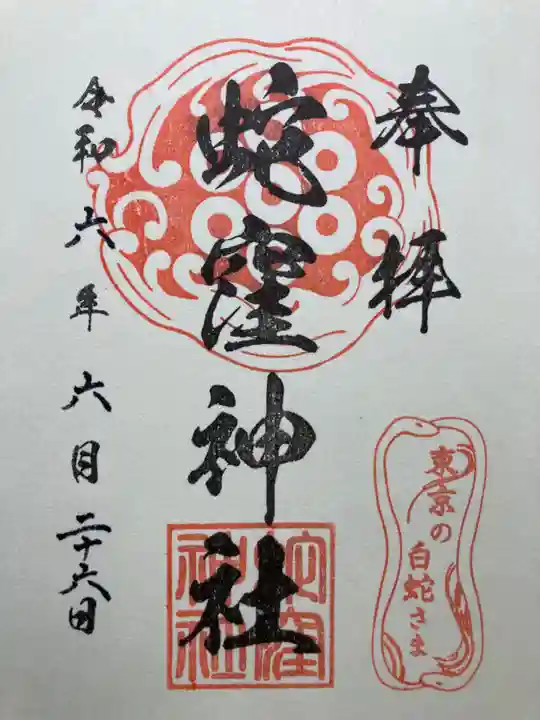 奉拝
蛇窪神社
蛇窪
神社
東京の
白蛇さま
令和六年 六月二十六日